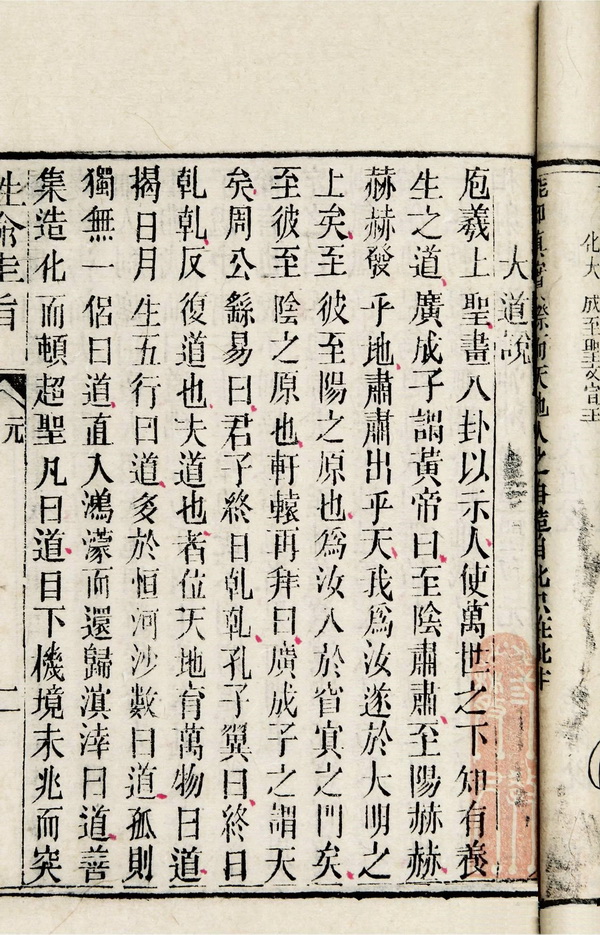 化大成至聖文宣王
大道說
庖羲上聖畫八卦以示人使萬世之下知有養
生之道廣成子謂黃帝曰至陰肅肅至陽赫赫
赫赫發乎地肅肅出乎天我爲汝遂於大明之
上矣至彼至陽之原也爲汝入於窅冥之門矣
至彼至陰之原也軒轅再拜曰廣成子之謂天
矣周公繇易曰君子終日乹乹孔子翼曰終日
乹乹反復道也夫道也者位天地育萬物曰道
揭日月生五行曰道多於恒河沙數曰道孤則
獨無一侶曰道直入鴻濛而還歸滇涬曰道善
集造化而頓超聖凡曰道目下機境未兆而突
性命圭旨 元 二